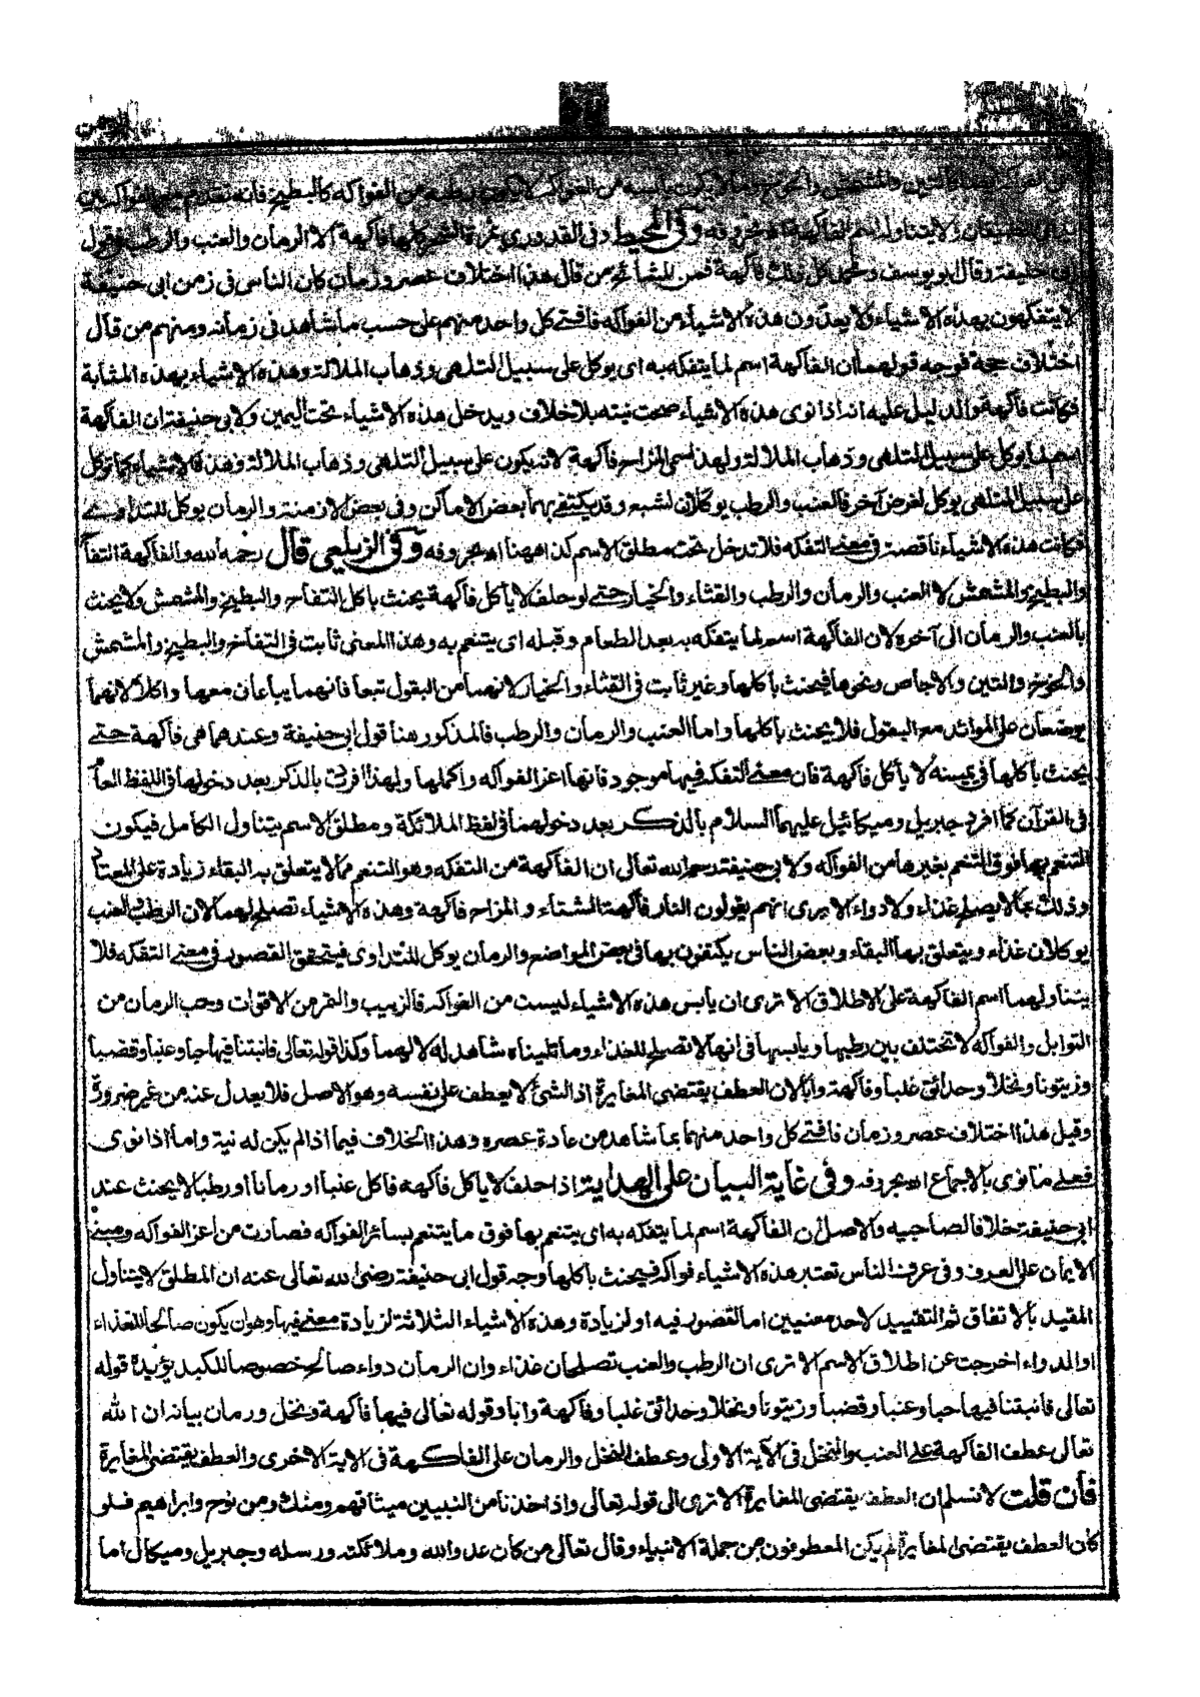 الرحمن
من الفواكه كالبطيخ فانه
ولا يتناوله اسم الفاكهة اه بحروفه وفى المحيط وفى القدورى ثمرة الشجر كلها فاكهة الا الرمان والعنب والرطب فى قول
ابى حنيفة وقال ابو يوسف ومحمد كل ذلك فاكهة فمن المشائخ من قال هذا اختلاف عصر وزمان كان الناس فى زمن ابى حنيفة
لا يتفكهون بهذه الاشياء ولا يعدّون هذه الاشياء من الفواكه فافتى كل واحد منهم على حسب ما شاهد فى زمانه ومنهم من قال
اختلاف حجة فوجه قولهما ان الفاكهة اسم لما يتفكه به اى يوكل على سبيل التلهى وذهاب الملالة وهذه الاشياء بهذه المثابة
فكانت فاكهة والدليل عليه انه اذا نوى هذه الاشياء صحت نيته بلا خلاف ويدخل هذه الاشياء تحت اليمين ولابى حنيفة ان الفاكهة
اسم لما يوكل على سبيل التلهى وذهاب الملالة ولهذا سمى المزاح فاكهة لانه يكون على سبيل التلهى وذهاب الملالة وهذه الاشياء كما توكل
على سبيل التلهى يوكل لغرض آخر فالعنب والرطب يوكلان لشبع وقد يكتفى بهما بعض الاماكن وفى بعض الازمنة والرمان يوكل للتداوى
فكانت هذه الاشياء ناقصة فى معنى التفكه فلا تدخل تحت مطلق الاسم كذا ههنا اه بحروفه وفى الزيلعى قال رحمه الله والفاكهة التفا
والبطيخ والمشمش لا العنب والرمان والرطب والقثاء والخيار حتى لو حلف لا يأكل فاكهة يحنث باكل التفاح والبطيخ والمشمش ولا يحنث
بالعنب والرمان الى آخره لان الفاكهة اسم لما يتفكه به بعد الطعام وقبله اى يتنعم به وهذا المعنى ثابت فى التفاح والبطيخ والمشمش
والخوخ والتين والاجاص ونحوها فيحنث باكلها وغير ثابت فى القثاء والخيار لانهما من البقول تبعا فانهما يباعان معها واكلا لانهما
يوضعان على الموائد مع البقول فلا يحنث باكلها واما العنب والرمان والرطب فالمذكور هنا قول ابى حنيفة وعندهما هى فاكهة حتى
يحنث باكلها فى يمينه لا يأكل فاكهة فان معنى التفكه فيها موجود فانها اعز الفواكه واكملها ولهذا افردت بالذكر بعد دخولها فى اللفظ العام
فى القرآن كما افرد جبريل وميكائيل عليهما السلام بالذكر بعد دخولهما فى لفظ الملائكة ومطلق الاسم يتناول الكامل فيكون
التنعم بها فوق التنعم بغيرها من الفواكه ولابى حنيفة رحمه الله تعالى ان الفاكهة من التفكه وهو التنعم مما لا يتعلق به البقاء زيادة على المعتا
وذلك بما لا يصلح غذاء ولا دواء الا يرى انهم يقولون النار فاكهة الشتاء والمزاح فاكهة وهذه الاشياء تصلح لهما لان الرطب والعنب
يوكلان غذاء ويتعلق بها البقاء وبعض الناس يكتفون بها فى بعض المواضع والرمان يوكل للتداوى فيتحقق القصور فى معنى التفكه فلا
يتناولهما اسم الفاكهة على الاطلاق الا ترى ان يابس هذه الاشياء ليست من الفواكه فالزبيب والتمر من الاقوات وحب الرمان من
التوابل والفواكه لا تختلف بين رطبها ويابسها فى انها لا تصلح للغذاء وما تليناه شاهد له لا لهما وكذا قوله تعالى فانبتنا فيها حبا وعنبا وقضبا
وزيتونا ونخلا وحدائق غلبا وفاكهة وابا لان العطف يقتضى المغايرة اذ الشئ لا يعطف على نفسه وهو الاصل فلا يعدل عنه من غير ضرورة
وقيل هذا اختلاف عصر وزمان فافتى كل واحد منهما بما شاهد من عادة عصره وهذا الخلاف فيما اذا لم يكن له نية واما اذا نوى
فعلى ما نوى بالاجماع اه بحروفه وفى غاية البيان على الهداية اذا حلف لا يأكل فاكهة فاكل عنبا او رمانا او رطبا لا يحنث عند
ابى حنيفة خلافا لصاحبيه والاصل ان الفاكهة اسم لما يتفكه به اى يتنعم بها فوق ما يتنعم بسائر الفواكه فصارت من اعز الفواكه ومبنى
الايمان على العرف وفى عرف الناس تعتبر هذه الاشياء فواكه فيحنث باكلها وجه قول ابى حنيفة رضى الله تعالى عنه ان المطلق لا يتناول
المقيد بالاتفاق ثم التقييد لاحد معنيين اما لقصور فيه او لزيادة وهذه الاشياء الثلاثة لزيادة معنى فيها وهو ان يكون صالحا للغذاء
او الدواء اخرجت عن اطلاق الاسم الا ترى ان الرطب والعنب تصلحان غذاء وان الرمان دواء صالح خصوصا للكبد يؤيده قوله
تعالى فانبتنا فيها حبا وعنبا وقضبا وزيتونا ونخلا وحدائق غلبا وفاكهة وابا وقوله تعالى فيها فاكهة ونخل ورمان بيانه ان الله
تعالى عطف الفاكهة على العنب والنخل فى الآية الاولى وعطف النخل والرمان على الفاكهة فى الاية الاخرى والعطف يقتضى المغايرة
فان قلت لا نسلم ان العطف يقتضى المغايرة الا ترى الى قوله تعالى واذ اخذنا من النبيين ميثاقهم ومنك ومن نوح وابراهيم فلو
كان العطف يقتضى المغايرة لم يكن المعطوفون من جملة الانبياء وقال تعالى من كان عدوا لله وملائكته ورسله وجبريل وميكال اما